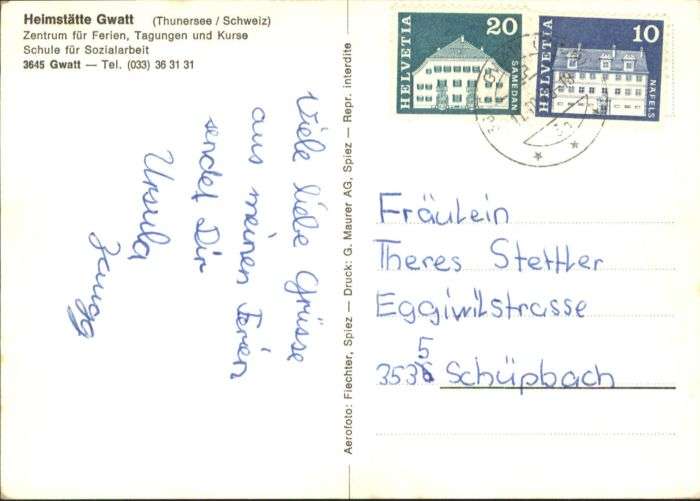 Heimstätte Gwatt (Thunersee / Schweiz)
Zentrum für Ferien, Tagungen und Kurse
Schule für Sozialarbeit
3645 Gwatt — Tel. (033) 36 31 31
Viele liebe Grüsse
aus meinen Ferien
sendet Dir
Ursula
Zaugg
Aerofoto: Flechter, Spiez — Druck: G. Maurer AG, Spiez — Repr. interdite
HELVETIA
20
SAMEDAN
HELVETIA
10
NÄFELS
Fräulein
Theres Stettler
Eggiwilstrasse
3535 Schüpbach